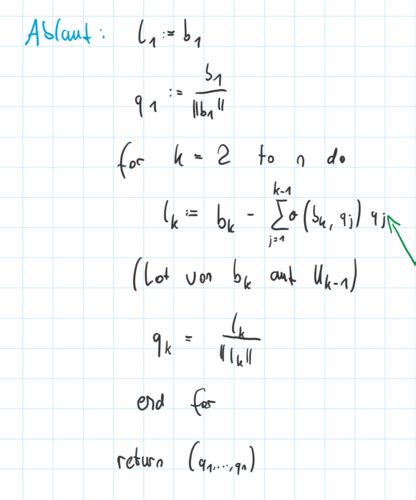 Ablauf: l₁ := b₁
q₁ := b₁ / ‖b₁‖
for k = 2 to n do
lₖ := bₖ - ∑_{j=1}^{k-1} σ(bₖ, qⱼ) qⱼ
(Lot von bₖ auf Uₖ₋₁)
qₖ = lₖ / ‖lₖ‖
end for
return (q₁,...,qₙ)